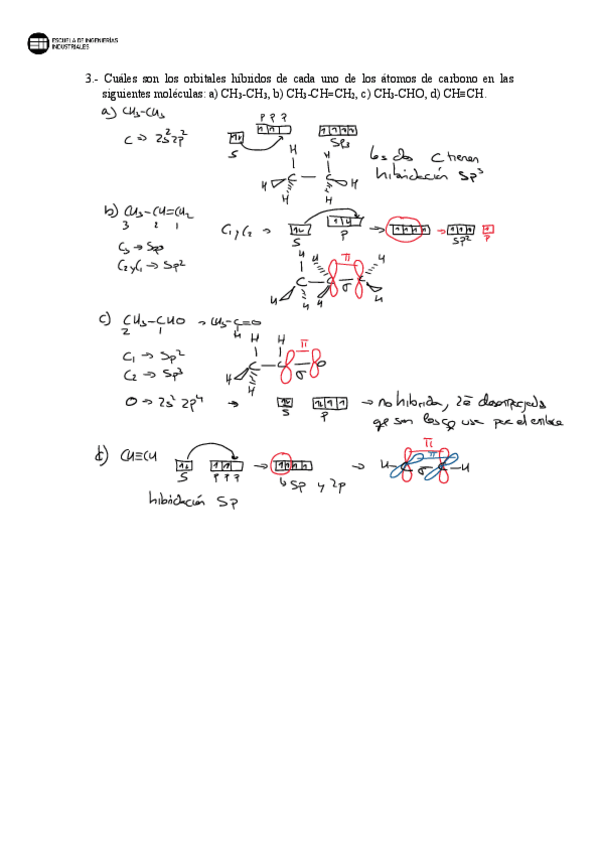 ESCUELA DE INGENIERÍAS
INDUSTRIALES
3.- Cuáles son los orbitales híbridos de cada uno de los átomos de carbono en las
siguientes moléculas: a) CH3-CH3, b) CH3-CH=CH2, c) CH3-CHO, d) CH≡CH.
a) CH3-CH3
C => 2s² 2p²
S
P P ?
Sp3
los dos C tienen
hibridación Sp³
H H
H C — C H
H H
b) CH3-CH=CH2
3 2 1
C1 y C2 →
S
P
Sp2
P
C3 → Sp3
C2 y C1 → Sp2
π
H H H
C — C σ C
H H H H
c) CH3-CHO → CH3-C=O
H
2 1
C1 → Sp2
C2 → Sp3
H H π
C — C σ O
H H
O → 2s² 2p⁴ →
S
P
→ no hibrida, 2e⁻ desemparejados
que son los que usa para el enlace
d) CH≡CH
S
P P ?
Sp y 2p
→ H-C σ C-H
π
π
hibridación Sp